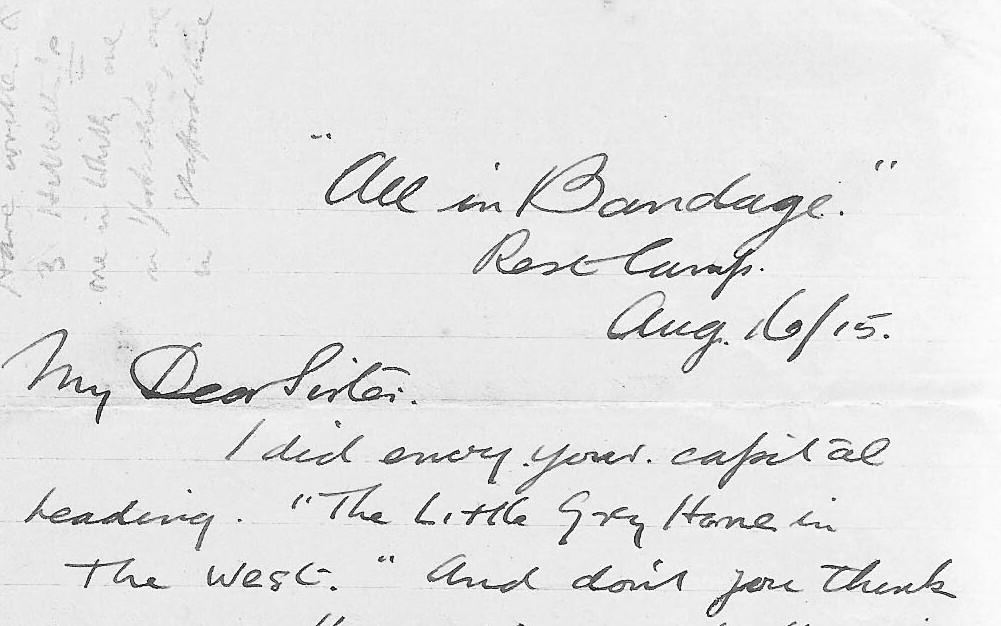 "All in Bandage."
Rest Camp.
Aug. 16/15.
My Dear Sister.
I did envy your. capital
heading. "The Little Grey Home in
The West." And don't you think
Have written
3
one in
in Yorkshire one
in Staffordshire